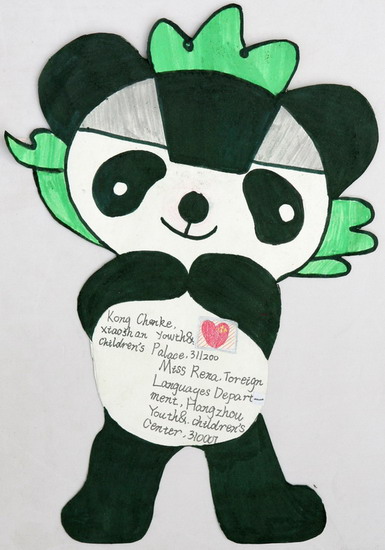 Kong Chenke,
Xiaoshan Youth&
Children's Palace, 311200
Miss Rena, Toreign
Languages Depart—
ment, Hangzhou
Youth&. children's
Center, 310007